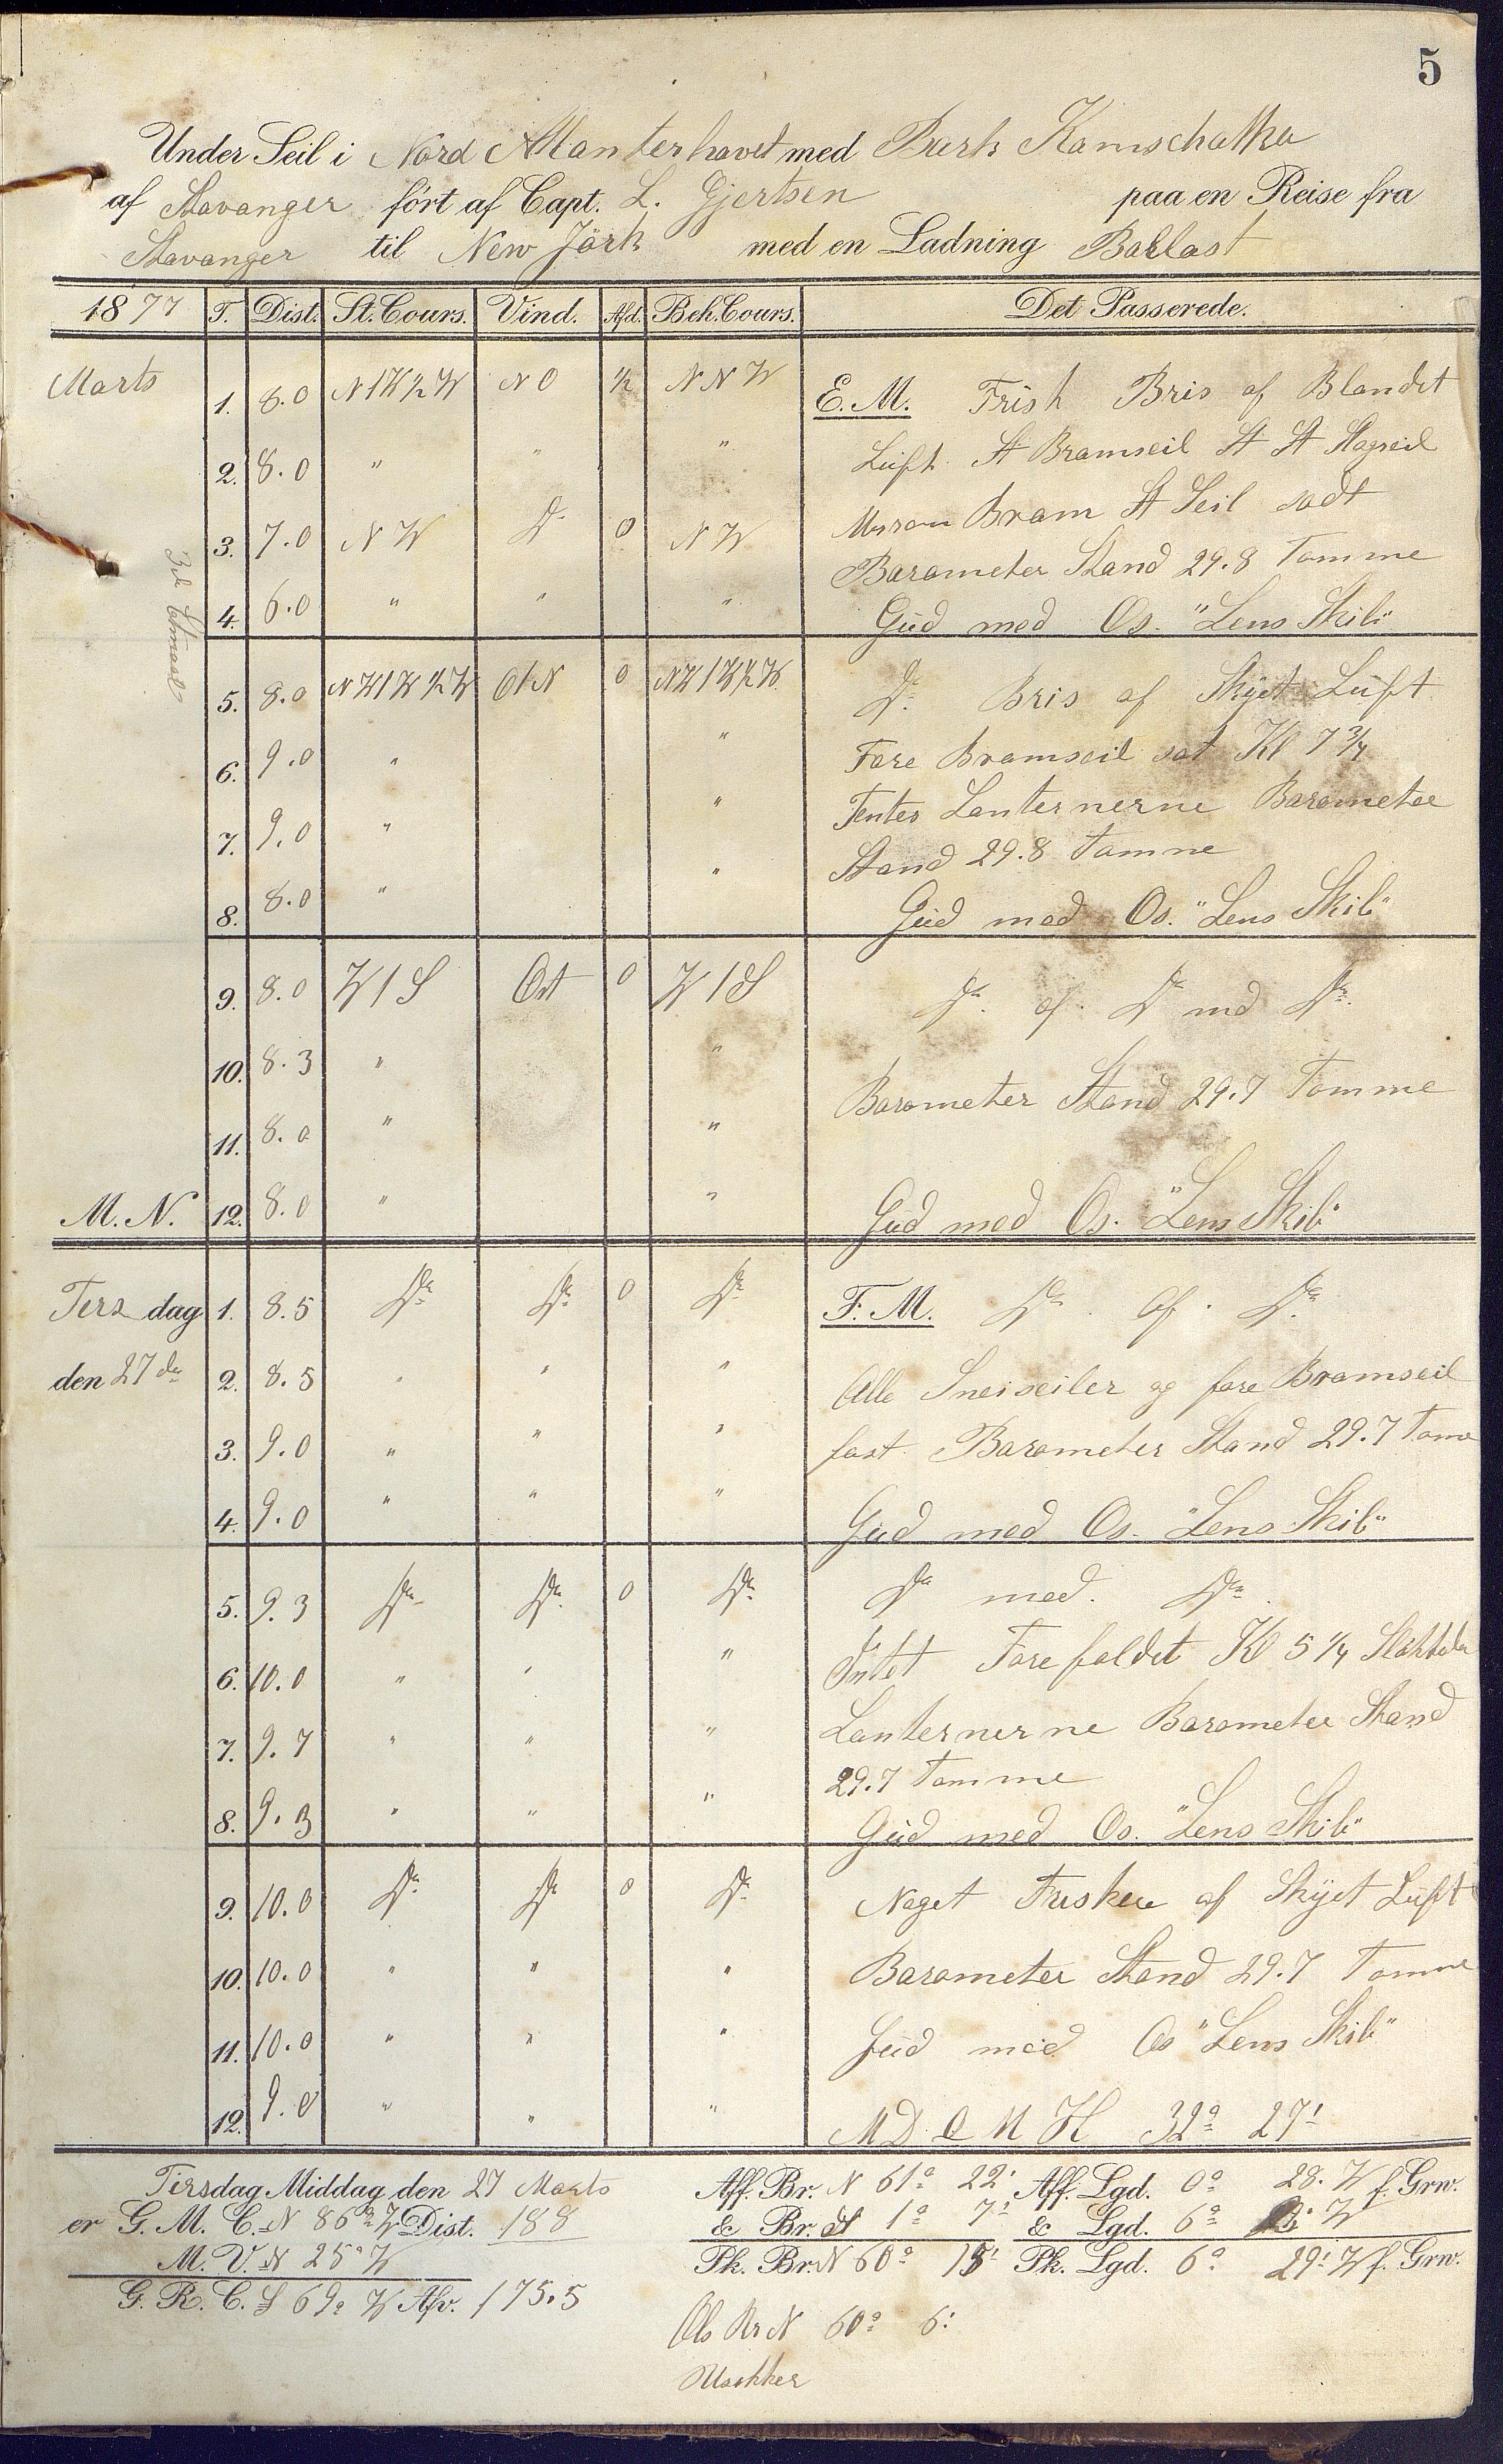 5
Under Seil i Nord Atlanterhavet med Bark Kamschatka
af Stavanger ført af Capt. L. Gjertsen paa en Reise fra
Stavanger til New Jörk med en Ladning Ballast
1877 T. Dist. St. Cours. Vind. Afd. Beh. Cours. Det Passerede.
Marts 1. 8.0 N1W½W NO ½ NNW E. M. Frisk Bris af Blandet
2. 8.0 " " " Lüft St Bramseil St St Stagseil
3. 7.0 NW Do 0 NW Bram St Seil sadt
Barometer Stand 29.8 Tomme
4. 6.0 " " " Güd med Os. "Lens Skib"
3de Etmaal
5. 8.0 NW1W½W O1N 0 NW1W½W Do Bris af Skÿet Lüft
6. 9.0 " " Fore Bramseil sat Kl 7¾
7. 9.0 " " Tentes Lanternerne Barometer
Stand 29.8 Tomme
8. 8.0 " " Güd med Os. "Lens Skib"
9. 8.0 W1S Ost 0 W1S Do af Do med Do
10. 8.3 " " Barometer Stand 29.7 Tomme
11. 8.0 " "
M. N. 12. 8.0 " " Güd med Os. "Lens Skib"
Tersdag 1. 8.5 Do Do 0 Do F. M. Do af Do
den 27de 2. 8.5 " " " Alle Sneiseiler og fore Bramseil
3. 9.0 " " " fast Barometer Stand 29.7 Tome
4. 9.0 " " " Güd med Os. "Lens Skib"
5. 9.3 Do Do 0 Do Do med Do
6. 10.0 " " " Intet Forefaldet Kl 5¼
7. 9.7 " " " Lanternerne Barometer Stand
29.7 Tomme
8. 9.3 " " " Güd med Os. "Lens Skib"
9. 10.0 Do Do 0 Do Noget Friskere af Skÿet Lüft
10. 10.0 " " " Barometer Stand 29.7 Tomme
11. 10.0 " " " Güd med Os "Lens Skib"
12. 9.0 " " " M D O M H 32° 27'
Tirsdag Middag den 27 Marts Aff. Br. N 61° 22' Aff. Lgd. 0° 28' W f. Grw.
er G. M. C. N 86° W Dist. 188 & Br. S 1° 7' & Lgd. 6° 1' W
M. V. N 25° W Pk. Br. N 60° 15' Pk. Lgd. 6° 29' W f. Grw.
G. R. C. S 69° W Afv. 175.5
Obs Br N 60° 6'